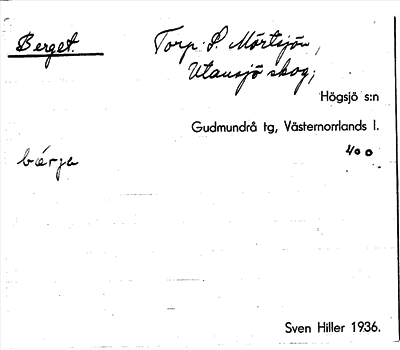 Berget.
Torp: S. Mörtsjön,
Utansjö skog;
Högsjö s:n
Gudmundrå tg, Västernorrlands l.
400
Sven Hiller 1936.